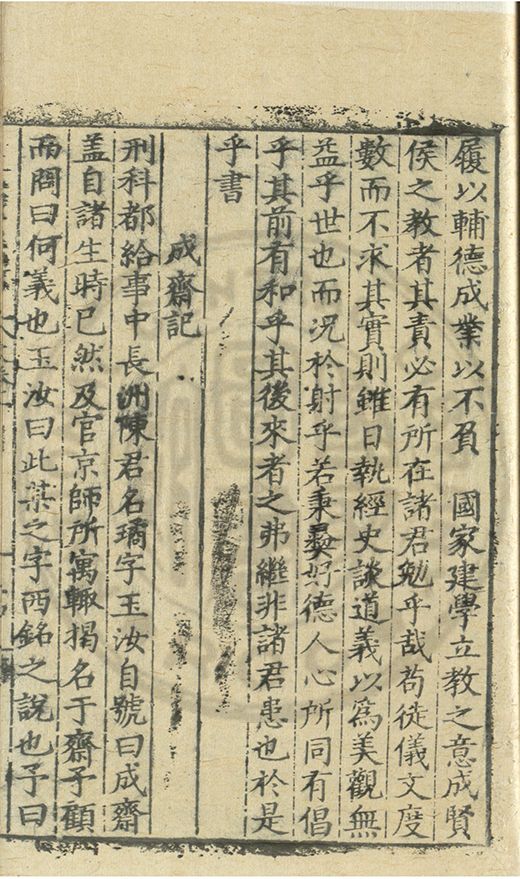 履以輔德成業以不負　國家建學立教之意成賢
侯之教者其責必有所在諸君勉乎哉苟徒儀文度
數而不求其實則雖日執經史談道義以爲美觀無
益乎世也而况於射乎若秉彜好德人心所同有倡
乎其前有和乎其後來者之弗繼非諸君患也於是
乎書
成齋記
刑科都給事中長洲陳君名璚字玉汝自號曰成齋
盖自諸生時已然及官京師所寓輙揭名于齋予顧
而問曰何義也玉汝曰此某之字西銘之說也予曰